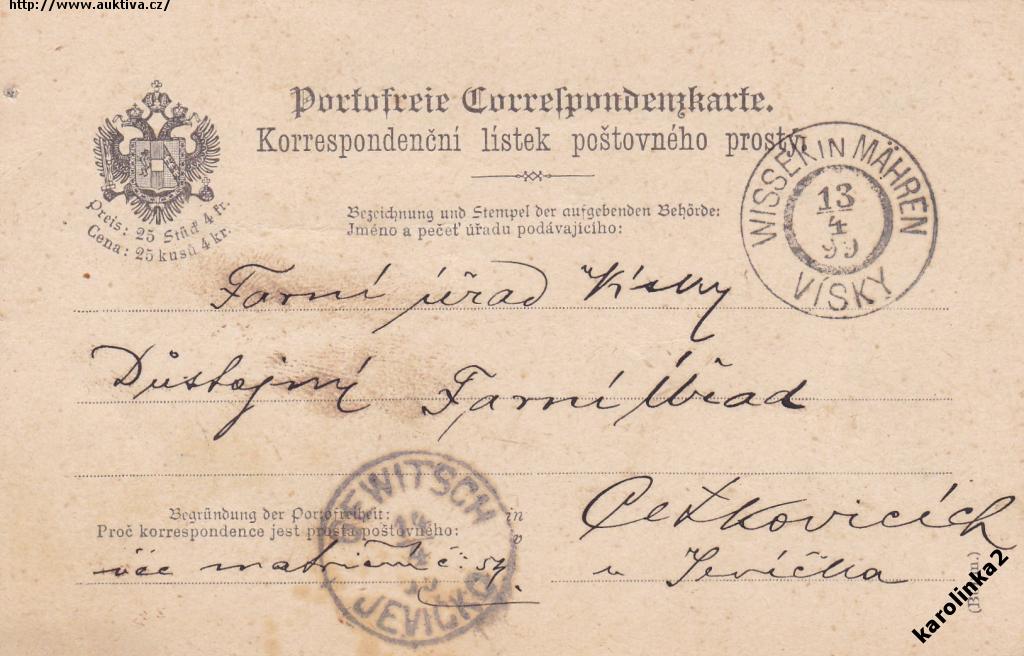 http://www.auktiva.cz/
Portofreie Correspondenzkarte.
Korrespondenční lístek poštovného prostý.
Preis: 25 Stück 4 kr.
Cena: 25 kusů 4 kr.
Bezeichnung und Stempel der aufgebenden Behörde:
Jméno a pečeť úřadu podávajícího:
WISSEK IN MÄHREN
13
4
99
VÍSKY
Farní úřad Vísky
Důstojný Farní Úřad
GEWITSCH
14
4
JEVÍČKO
Begründung der Portofreiheit:
Proč korrespondence jest prosta poštovného:
in
v
Cetkovicích
u Jevíčka
věc matriční č.
karolinka2